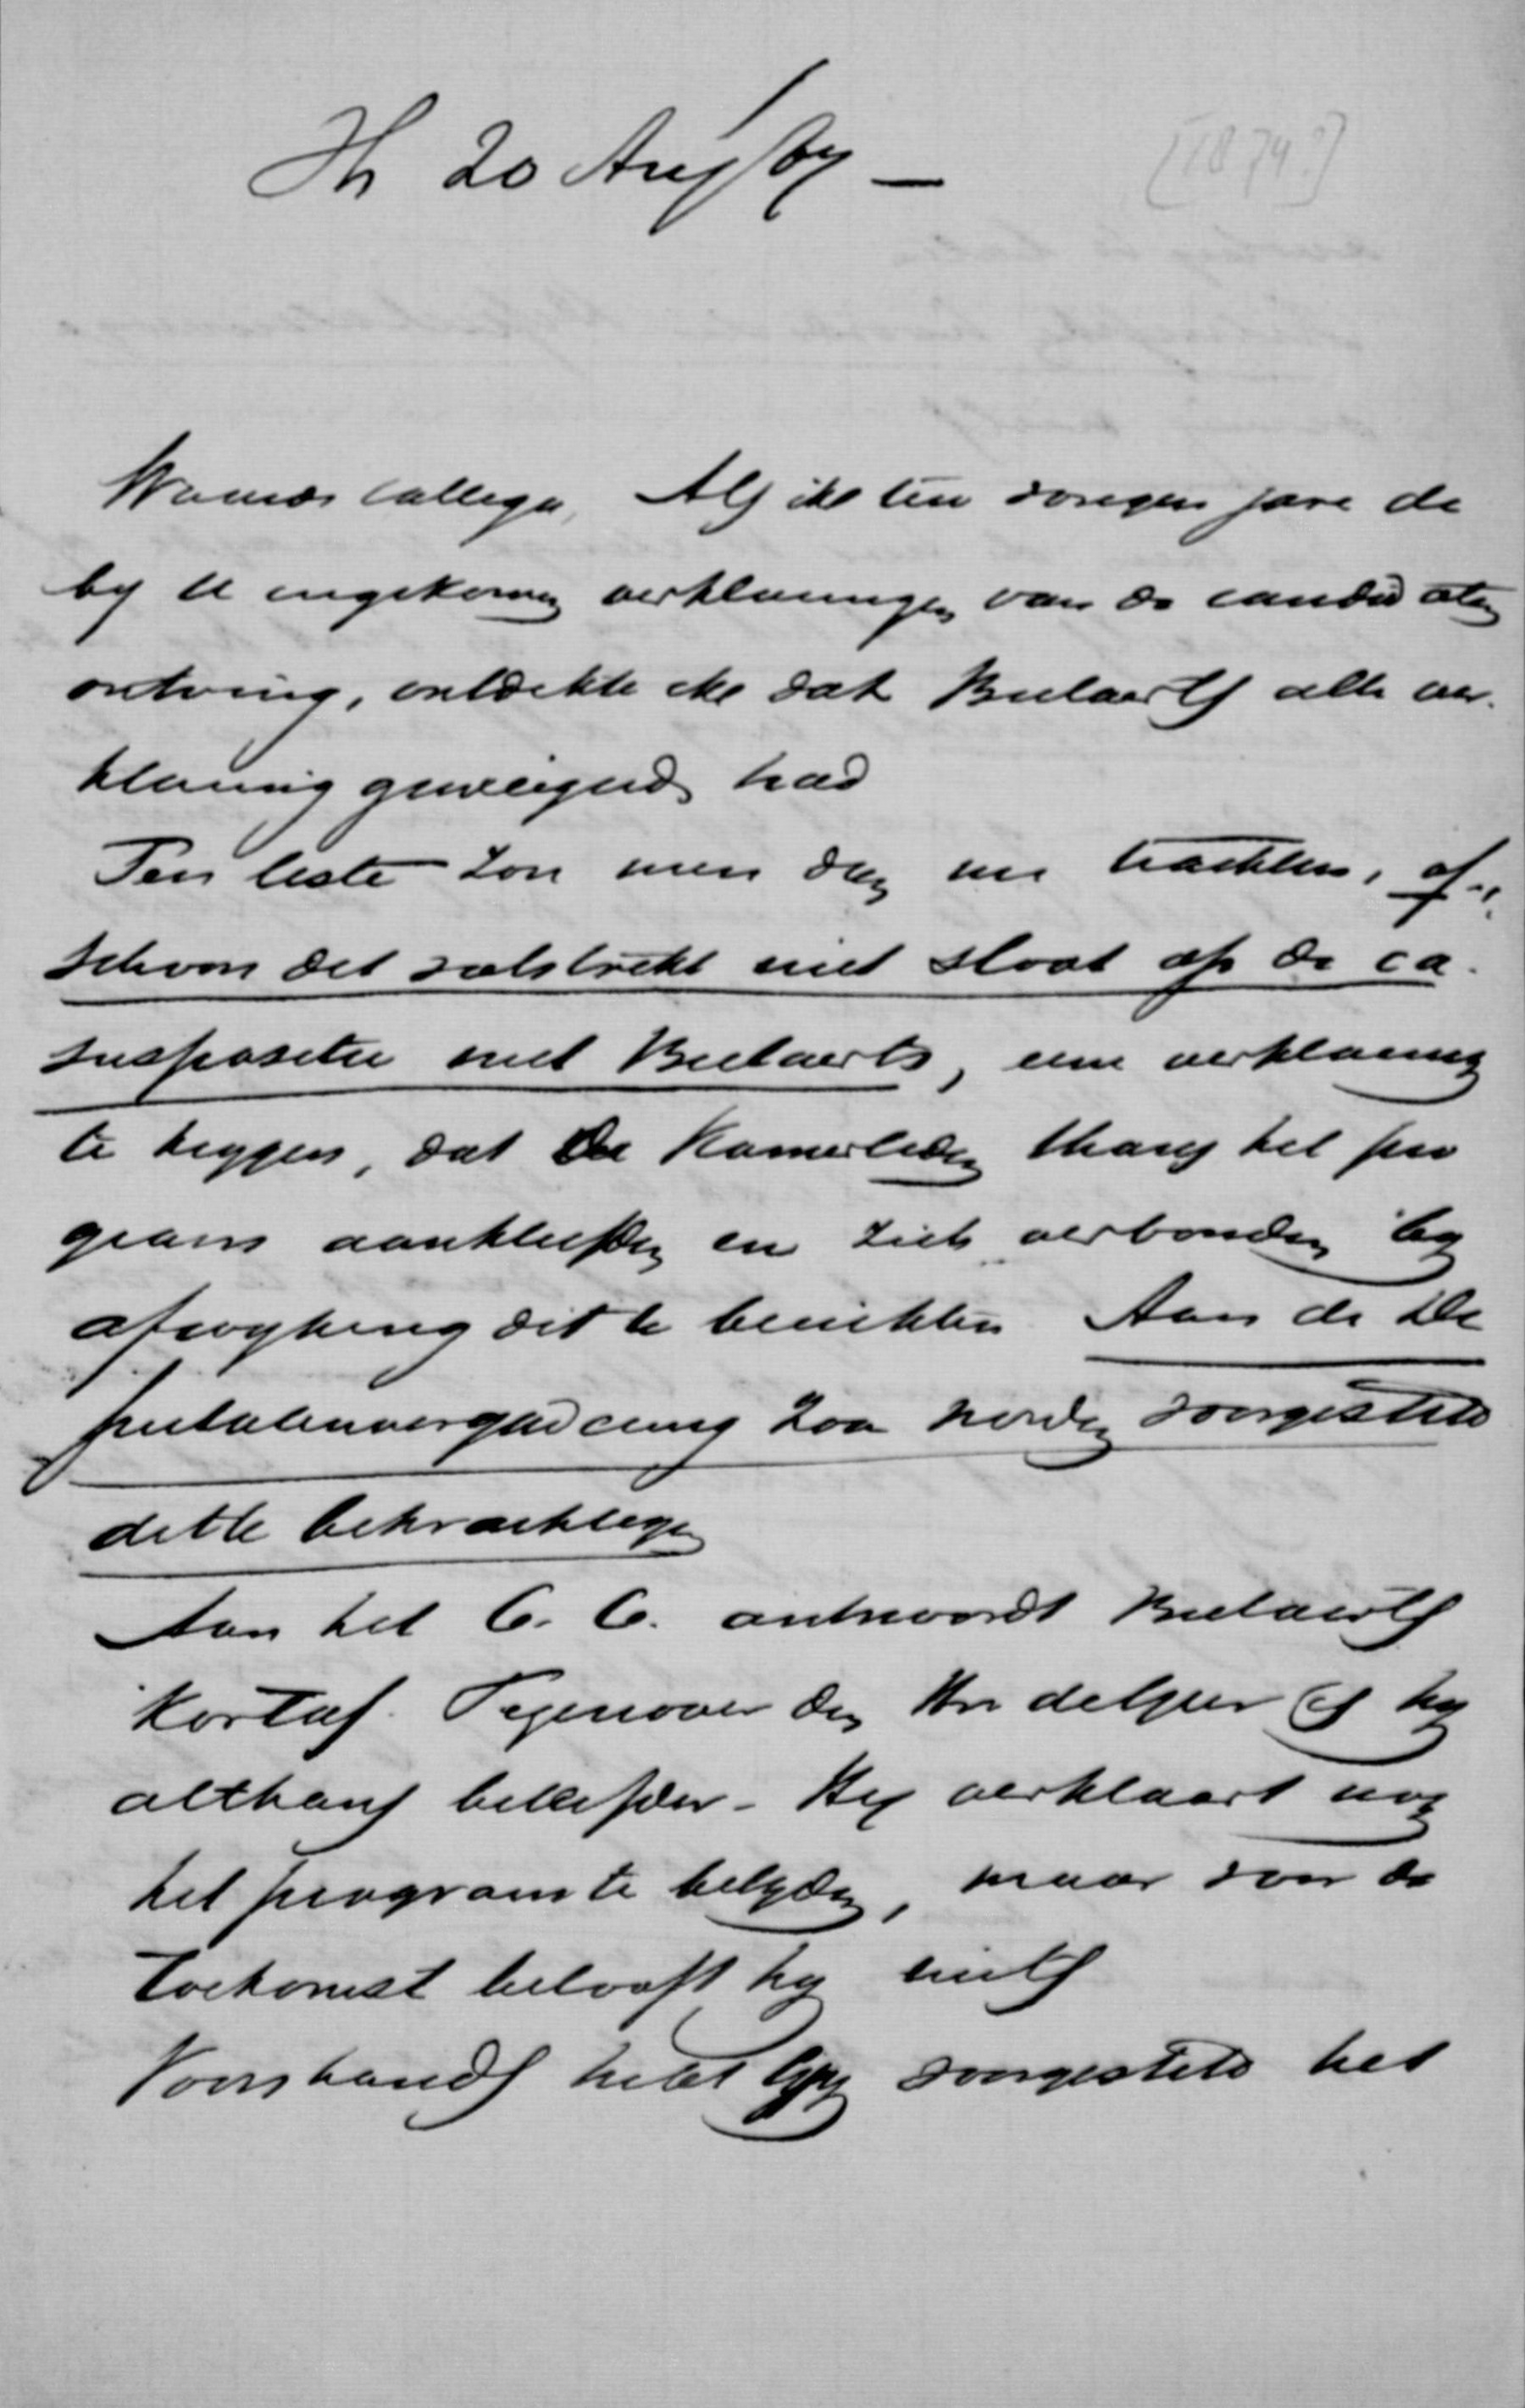 20 Aug
[1874?]
Waarde Collega, Als ik ten vorigen jare de
by U ingekomen verklaringen van de candidaten
ontving, ontdekte ik dat Beelaerts alle ver-
klaring geweigerd had
Ten leste zou men dan nu trachten, of-
schoon dit volstrekt niet sloot op de ca-
suspositie met Beelaerts, eene verklaring
te krygen, dat de Kamerleden thans het pro
gram aankleefden en zich verbonden by
afwyking dit te berichten Aan de De
putatenvergadering zou worden voorgesteld
dit te bekrachtigen
Aan het C. C. antwoordt Beelaerts
kortaf. Tegenover den Hr is hy
althans beleefder. Hy verklaart nog
het program te belyden, maar voor de
toekomst belooft hy niets
Voorshands hebt gy voorgesteld het